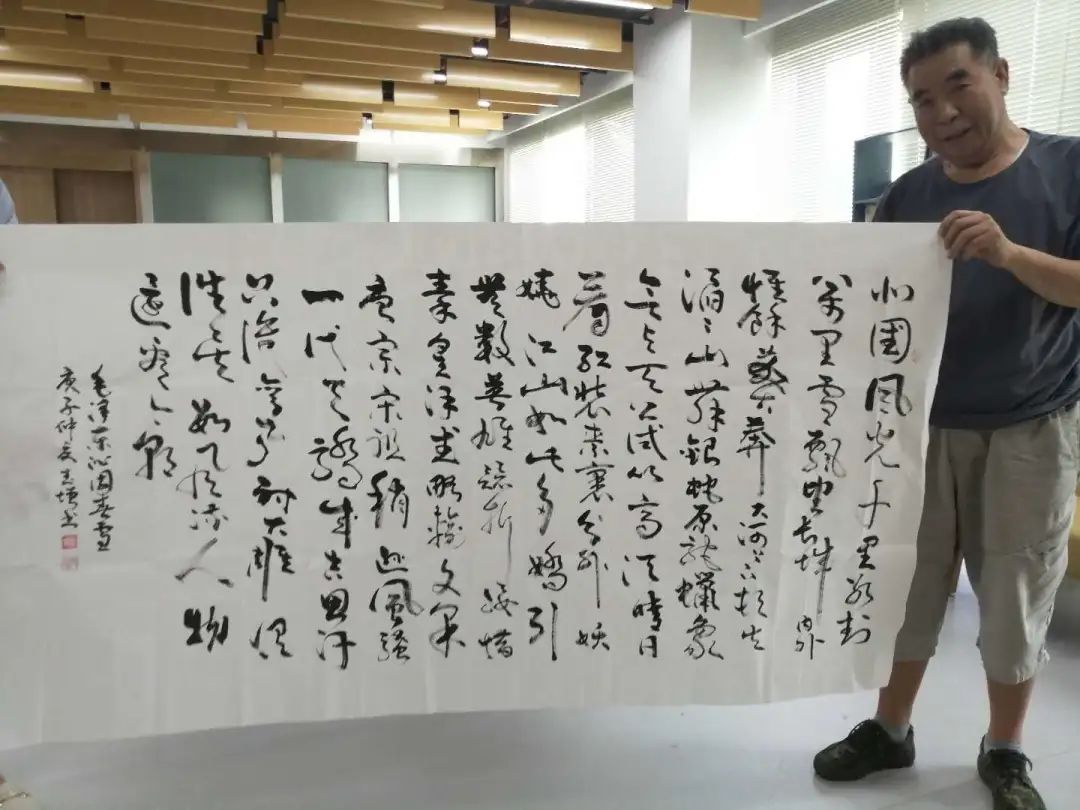 北國風光千里冰封
萬里雪飘望长城内外
惟餘莽莽大河上下顿失
滔滔山舞銀蛇原驰蠟象
欲与天公试比高须晴日
看红装素裹分外妖
娆江山如此多嬌引
無数英雄竞折腰惜
秦皇汉武略输文采
唐宗宋祖稍逊風骚
一代天骄成吉思汗
只识弯弓射大雕俱
往矣数风流人物
还看今朝
毛泽东沁园春雪
庚子仲夏书